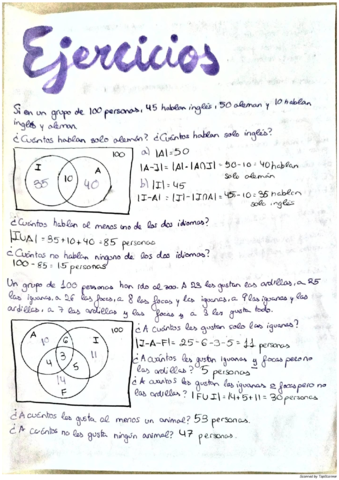 Ejercicios
Si en un grupo de 100 personas, 45 hablan inglés, 50 aleman y 10 hablan
inglés y aleman.
¿Cuántos hablan solo alemán? ¿Cuántos hablan solo inglés?
100
I
A
35
10
40
a) |A| = 50
|A-I| = |A|-|A∩I| = 50-10 = 40 hablan
solo alemán
b) |I| = 45
|I-A| = |I|-|I∩A| = 45-10 = 35 hablan
solo inglés
¿Cuántos hablan al menos uno de los dos idiomas?
|I∪A| = 35+10+40 = 85 personas
¿Cuántos no hablan ninguno de los dos idiomas?
100-85 = 15 personas
Un grupo de 100 personas han ido al zoo. A 23 les gustan las ardillas, a 25
las iguanas, a 26 las focas, a 8 las focas y las iguanas, a 9 las iguanas y las
ardillas, a 7 las ardillas y las focas y a 3 les gusta todo.
100
A
I
10
6
11
3
4
5
14
F
¿A cuántos les gustan solo las iguanas?
|I-A-F| = 25-6-3-5 = 11 personas
¿A cuántos les gustan iguanas y focas pero no
las ardillas? 5 personas
¿A cuantos les gustan las iguanas o focas pero no
las ardillas? |F∪I| = 14+5+11 = 30 personas
¿A cuéntos les gusta al menos un animal? 53 personas.
¿A cuéntos no les gusta ningún animal? 47 personas.
Scanned by TapScanner